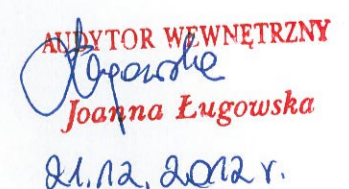 AUDYTOR WEWNĘTRZNY
Ługowska
Joanna Ługowska
21.12.2012 r.